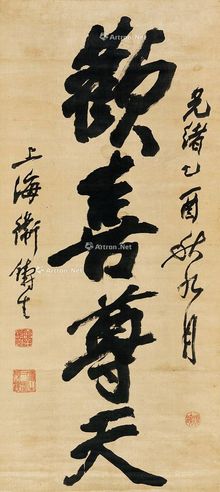 光緒乙酉秋九月
歡喜尊天
上海衛鑄生
Artron.Net
Artron.Net
Artron.Net
Artron.Net